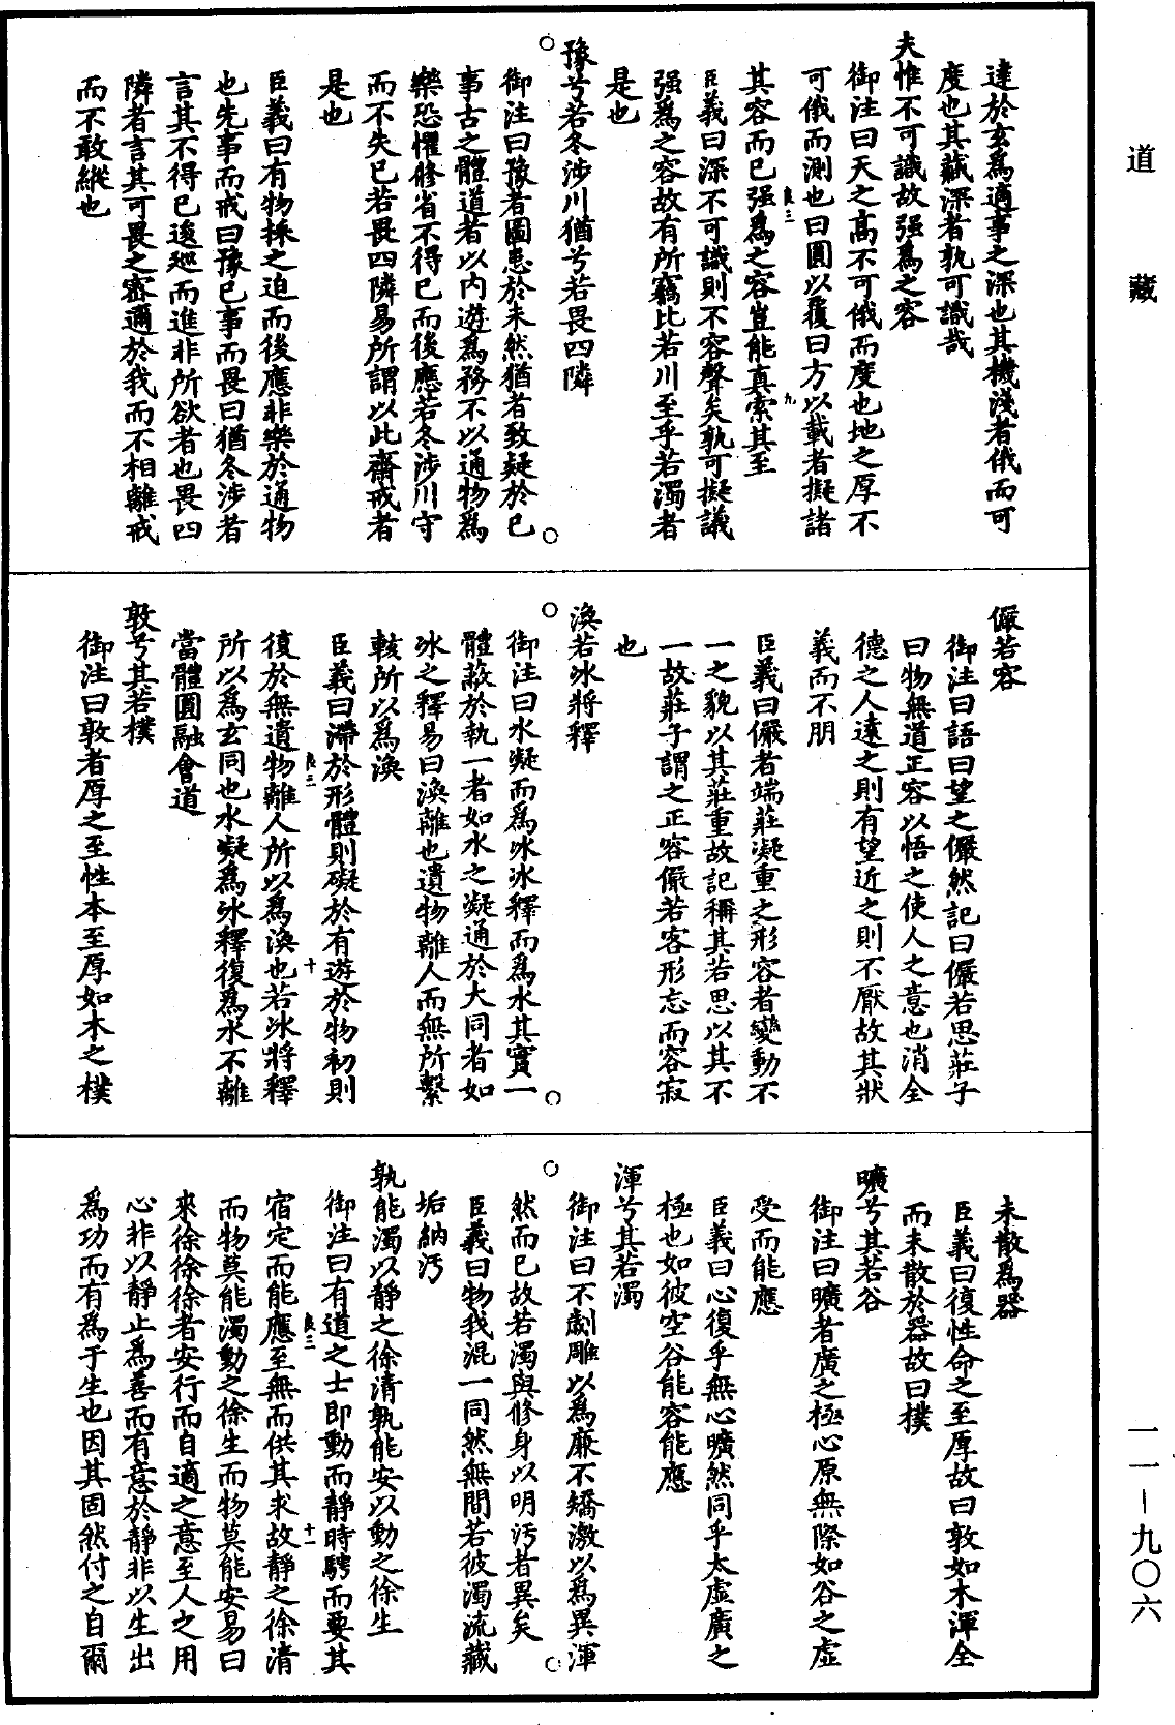 道藏
達於玄爲適事之深也其機淺者俄而可
度也其藏深者孰可識哉
夫惟不可識故强爲之容
御注曰天之高不可俄而度也地之厚不
可俄而測也曰圓以覆曰方以載者擬諸
其容而已强爲之容豈能真索其至
良三
九
臣義曰深不可識則不容聲矣孰可擬議
强爲之容故有所竊比若川至乎若濁者
是也
豫兮若冬涉川猶兮若畏四隣
御注曰豫者圖患於未然猶者致疑於已
事古之體道者以内遊爲務不以通物爲
樂恐懼修省不得已而後應若冬涉川守
而不失已若畏四隣易所謂以此齋戒者
是也
臣義曰有物採之迫而後應非樂於通物
也先事而戒曰豫已事而畏曰猶冬涉者
言其不得已逡廵而進非所欲者也畏四
隣者言其可畏之密邇於我而不相離戒
而不敢縱也
儼若容
御注曰語曰望之儼然記曰儼若思莊子
曰物無道正容以悟之使人之意也消全
德之人遠之則有望近之則不厭故其狀
義而不朋
臣義曰儼者端莊凝重之形容者變動不
一之貌以其莊重故記稱其若思以其不
一故莊子謂之正容儼若客形忘而容寂
也
渙若冰將釋
御注曰水凝而爲冰冰釋而爲水其實一
體蔽於執一者如水之凝通於大同者如
冰之釋易曰渙離也遺物離人而無所繫
輆所以爲渙
臣義曰滯於形體則礙於有遊於物初則
良三
十
復於無遺物離人所以爲渙也若冰將釋
所以爲玄同也水凝爲冰釋復爲水不離
當體圓融會道
敦兮其若樸
御注曰敦者厚之至性本至厚如木之樸
未散爲器
臣義曰復性命之至厚故曰敦如木渾全
而未散於器故曰樸
曠兮其若谷
御注曰曠者廣之極心原無際如谷之虛
受而能應
臣義曰心復乎無心曠然同乎太虛廣之
極也如彼空谷能容能應
渾兮其若濁
御注曰不劌雕以爲廉不矯激以爲異渾
然而已故若濁與修身以明汚者異矣
臣義曰物我混一同然無間若彼濁流藏
垢納汚
孰能濁以靜之徐清孰能安以動之徐生
御注曰有道之士即動而靜時騁而要其
良三
十一
宿定而能應至無而供其求故靜之徐清
而物莫能濁動之徐生而物莫能安易曰
來徐徐徐者安行而自適之意至人之用
心非以靜止爲善而有意於靜非以生出
爲功而有爲于生也因其固然付之自爾
一一—九〇六